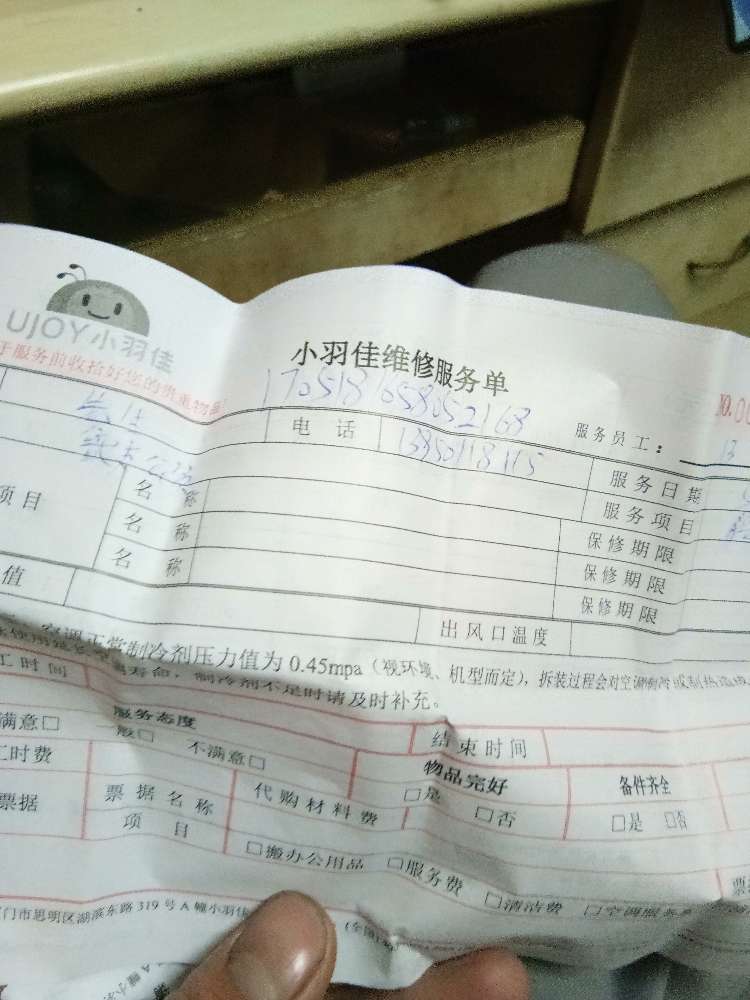 UJOY小羽佳
小羽佳维修服务单
于服务前收拾好您的贵重物品
NO.00
1705181658052168
服务员工：
电 话 13850118115
服务日期
项目 名 称
服务项目
名 称 保修期限
名 称 保修期限
保修期限
值 出风口温度
空调正常制冷剂压力值为 0.45mpa（视环境、机型而定），拆装过程会对空调制冷或制热造成
寿命，制冷剂不足时请及时补充。
工时间 结束时间
服务态度 物品完好 备件齐全
满意□ 般□ 不满意□ □是 □否 □是 □否
工时费 代购材料费
票据 票据名称
项 目 □搬办公用品 □服务费 □清洁费 □空调服务
门市思明区湖滨东路 319 号 A 幢小羽佳